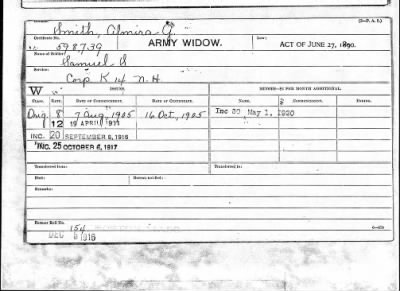 (3—P. A. S.)
Smith, Almira G.
Certificate No.
Law:
598739
ARMY WIDOW.
ACT OF JUNE 27, 1890.
Name of Soldier:
Samuel S
Service:
Corp K 14 N.H
W
ISSUES.
Class. Rate. Date of Commencement. Date of Certificate. Name. Commencement. Ending.
Orig. 8 7 Aug, 1905 16 Oct, 1905 Inc 30 May 1, 1920
12 19 APRIL
INC. 20 SEPTEMBER 8, 1916
INC. 25 OCTOBER 6, 1917
Transferred from: Transferred to:
Died: Bureau notified:
Remarks:
Former Roll No.
154
DEC 1916